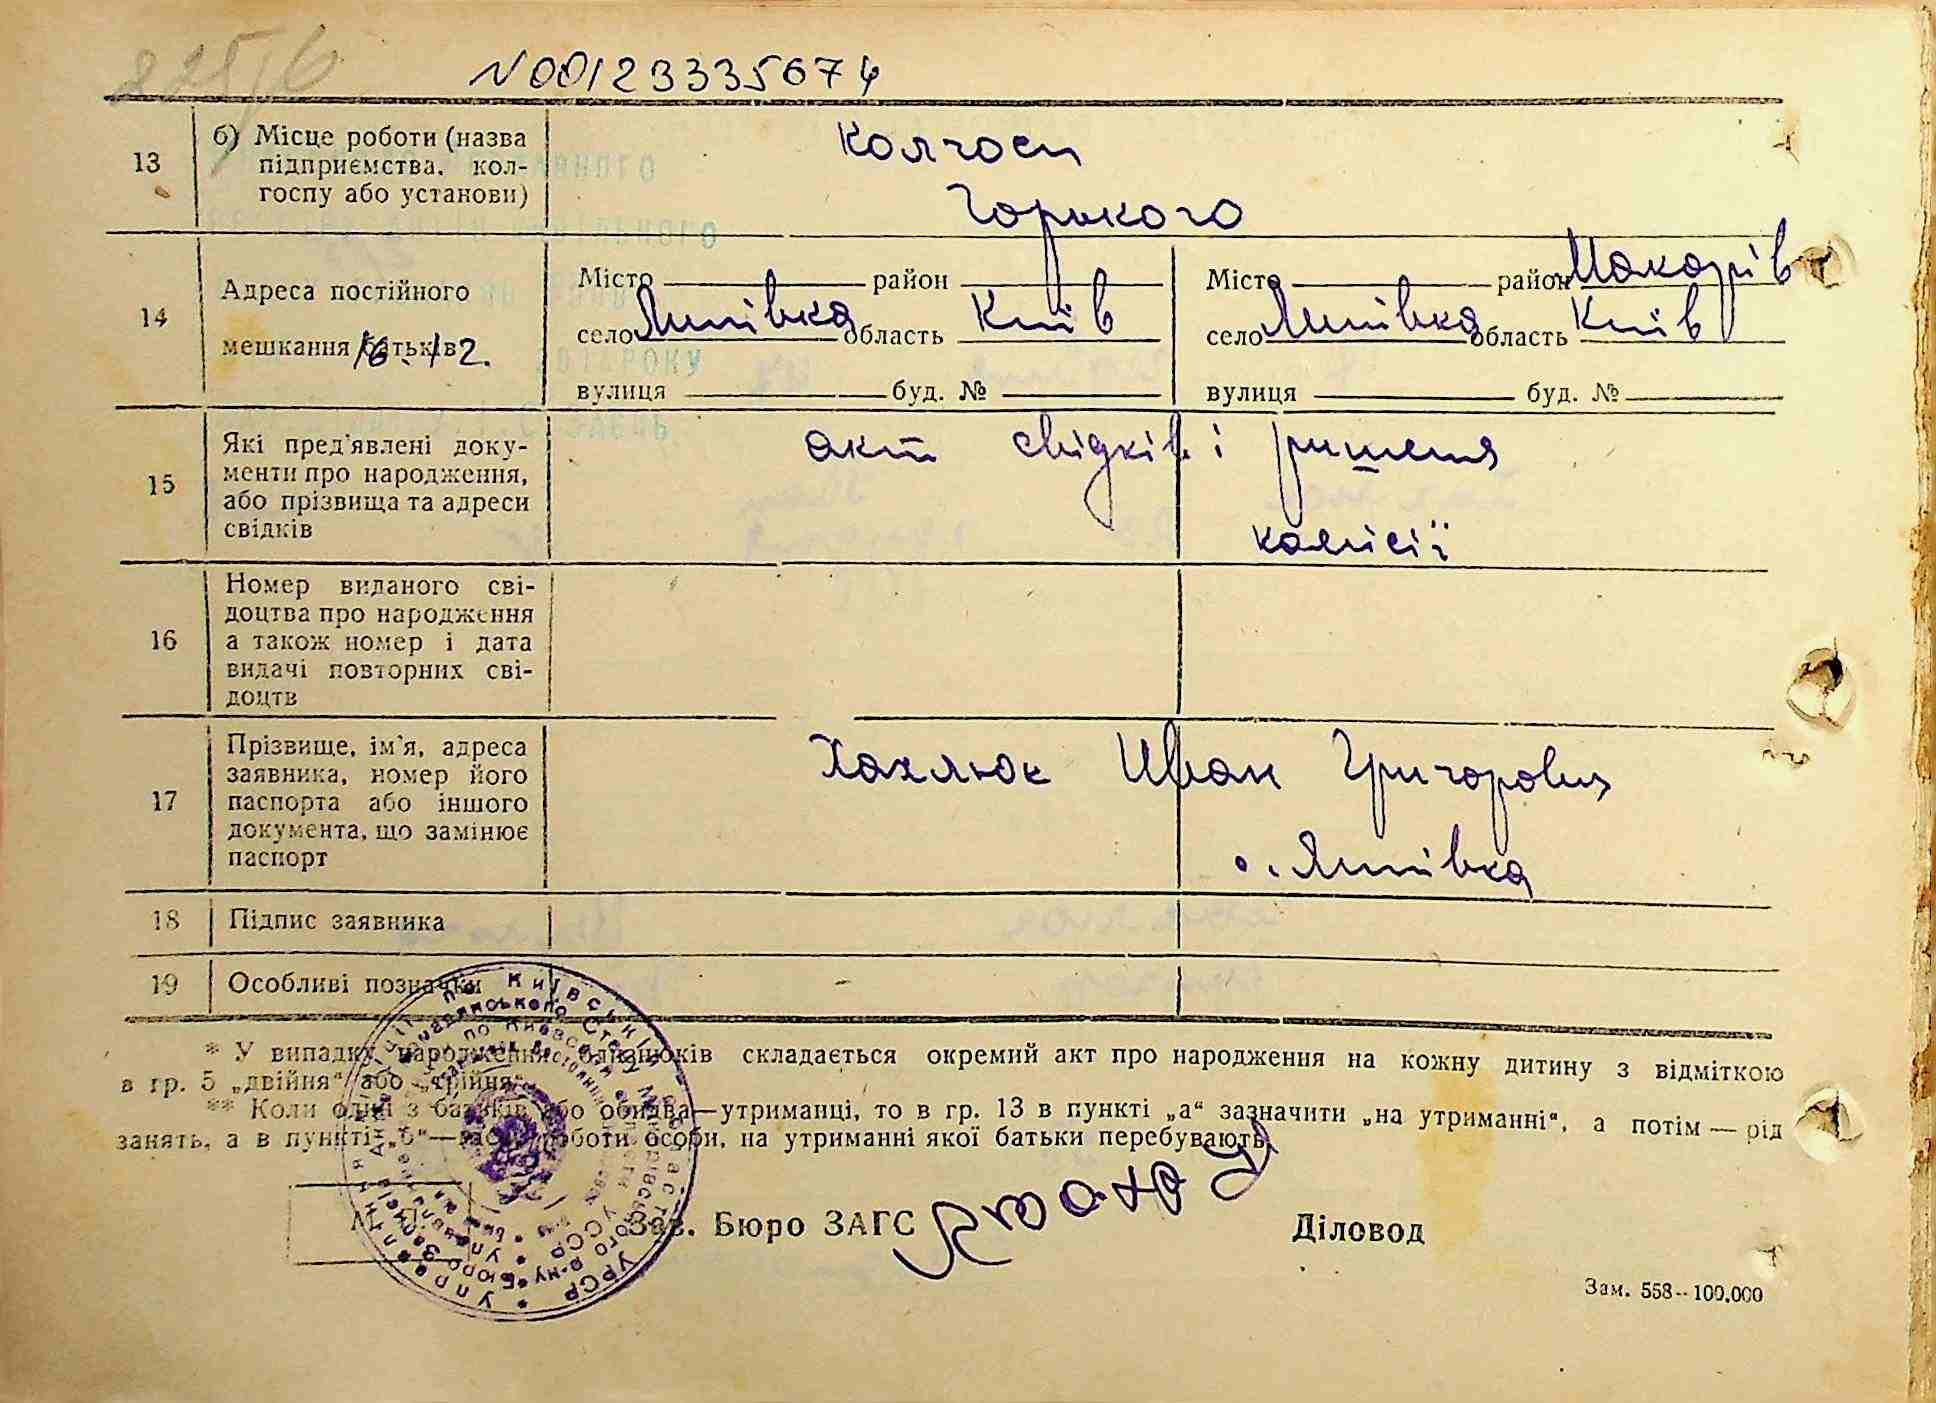 225/6
N00123335674
13
б) Місце роботи (назва
підприємства, кол-
госпу або установи)
Колгосп
Горького
14
Адреса постійного
мешкання батьків
16.12.
Місто район
село Липівка область Київ
вулиця буд. №
Місто район Макарів
село Липівка область Київ
вулиця буд. №
15
Які пред'явлені доку-
менти про народження,
або прізвища та адреси
свідків
акт свідків і ришення
комісії
16
Номер виданого сві-
доцтва про народження
а також номер і дата
видачі повторних сві-
доцтв
17
Прізвище, ім'я, адреса
заявника, номер його
паспорта або іншого
документа, що замінює
паспорт
Хахлюк Иван Григорович
с. Липівка
18 Підпис заявника
19 Особливі позначки
* У випадку народження близнюків складається окремий акт про народження на кожну дитину з відміткою
в гр. 5 „двійня“ або „трійня“.
** Коли один з батьків або обидва—утриманці, то в гр. 13 в пункті „а“ зазначити „на утриманні“, а потім — рід
занять, а в пункті „б“—місце роботи особи, на утриманні якої батьки перебувають.
Зав. Бюро ЗАГС
Діловод
Зам. 558--100.000